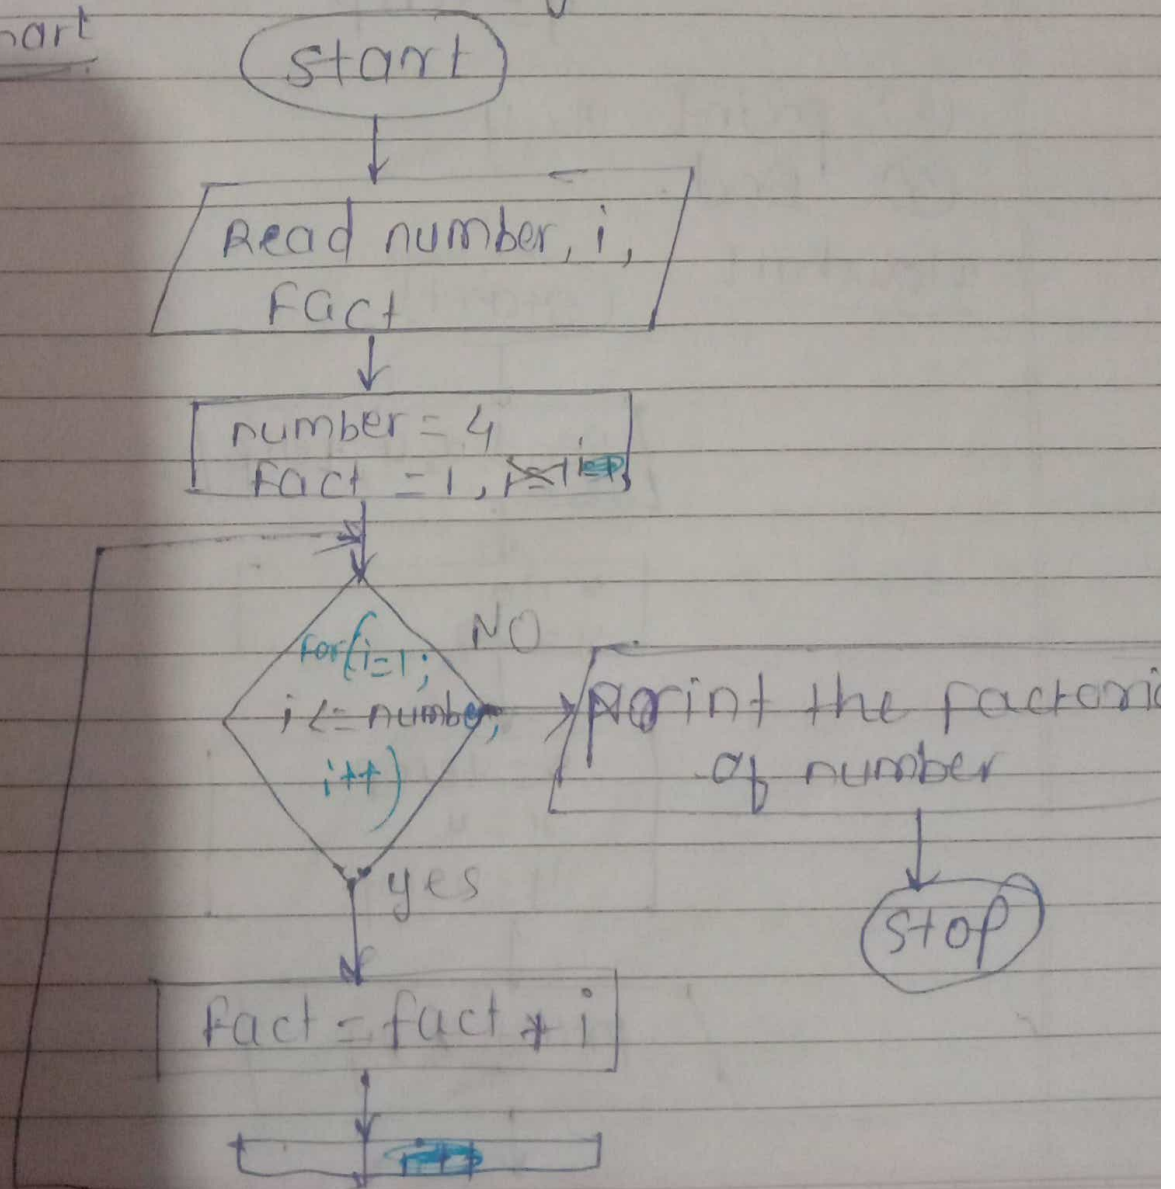 start
Read number, i,
Fact
number = 4
Fact = 1,
for(i=1;
NO
i <= number;
print the factori
i++)
of number
yes
stop
Fact = fact * i
i++